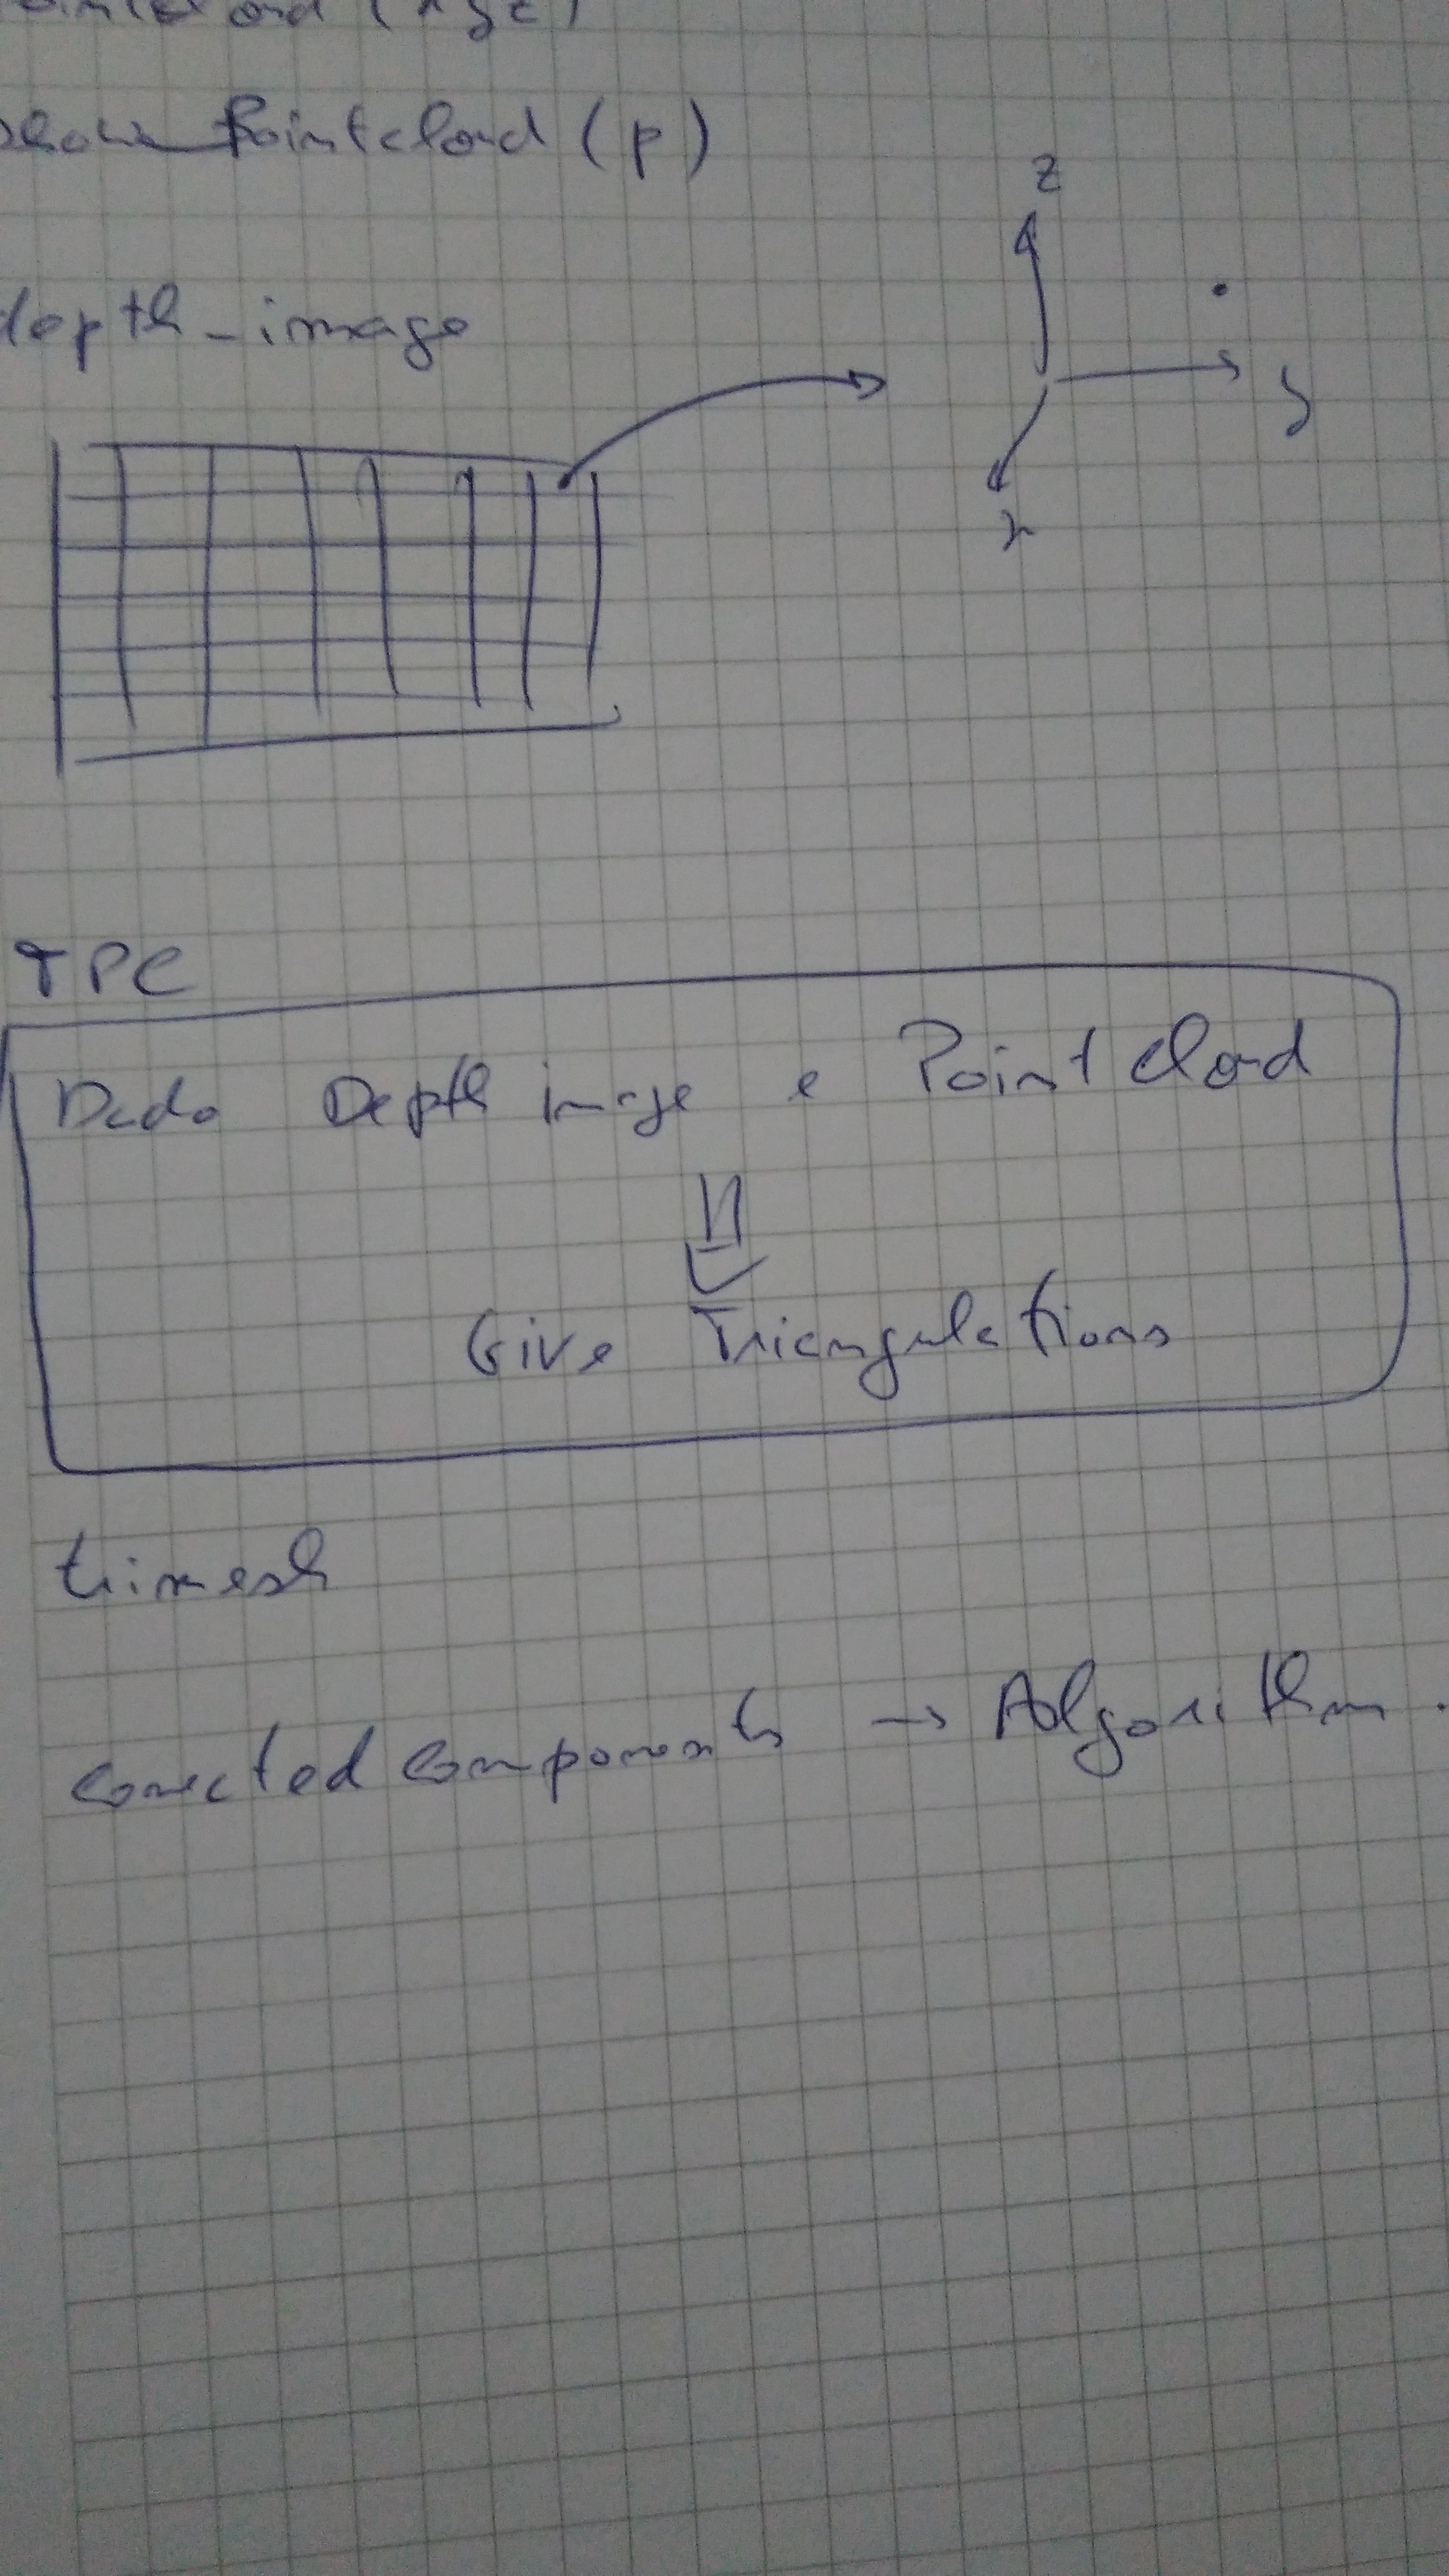 pointcloud (xyz)
show_Pointcloud (p)
z
depth_image
y
x
TPC
Dado Depth image e Point Cloud
Give Triangulations
trimesh
conected components → Algorithm.